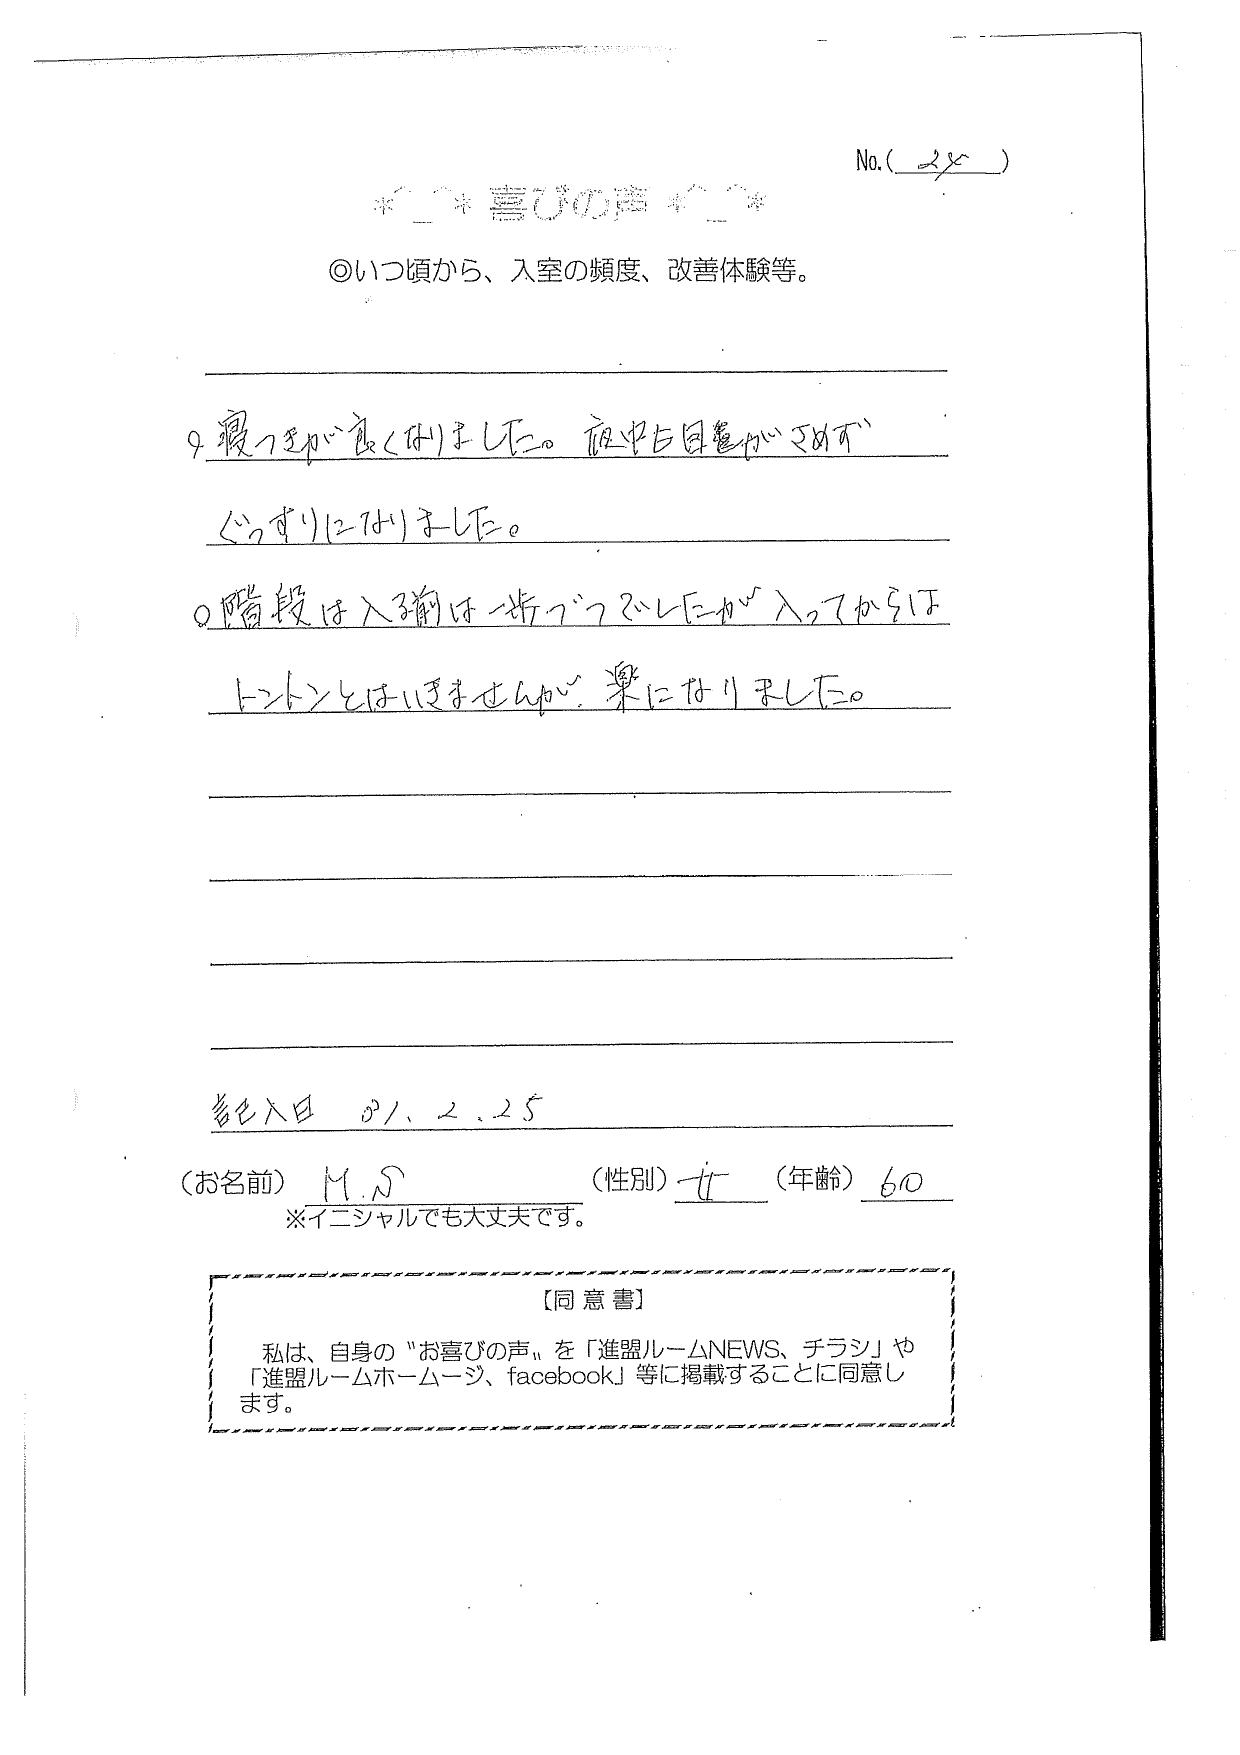 No.( 24 )
*^_^* 喜びの声 *^_^*
◎いつ頃から、入室の頻度、改善体験等。
○寝つきが良くなりました。夜中も目がさめず
ぐっすりになりました。
○階段は入る前は一歩づつでしたが入ってからは
トントンとはいきませんが、楽になりました。
記入日 31.2.25
(お名前) M.S (性別) 女 (年齢) 60
※イニシャルでも大丈夫です。
【同意書】
私は、自身の〝お喜びの声〟を「進盟ルームNEWS、チラシ」や
「進盟ルームホームージ、facebook」等に掲載することに同意し
ます。